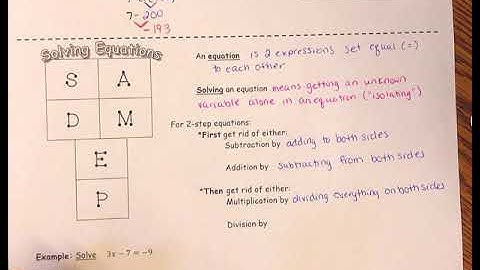 7 - 200
- 193
Solving Equations
S A
D M
E
P
An equation is 2 expressions set equal (=)
to each other
Solving an equation means getting an unknown
variable alone in an equation ("isolating")
For 2-step equations:
*First get rid of either:
Subtraction by adding to both sides
Addition by subtracting from both sides
*Then get rid of either:
Multiplication by dividing everything on both sides
Division by
Example: Solve 3x - 7 = -9